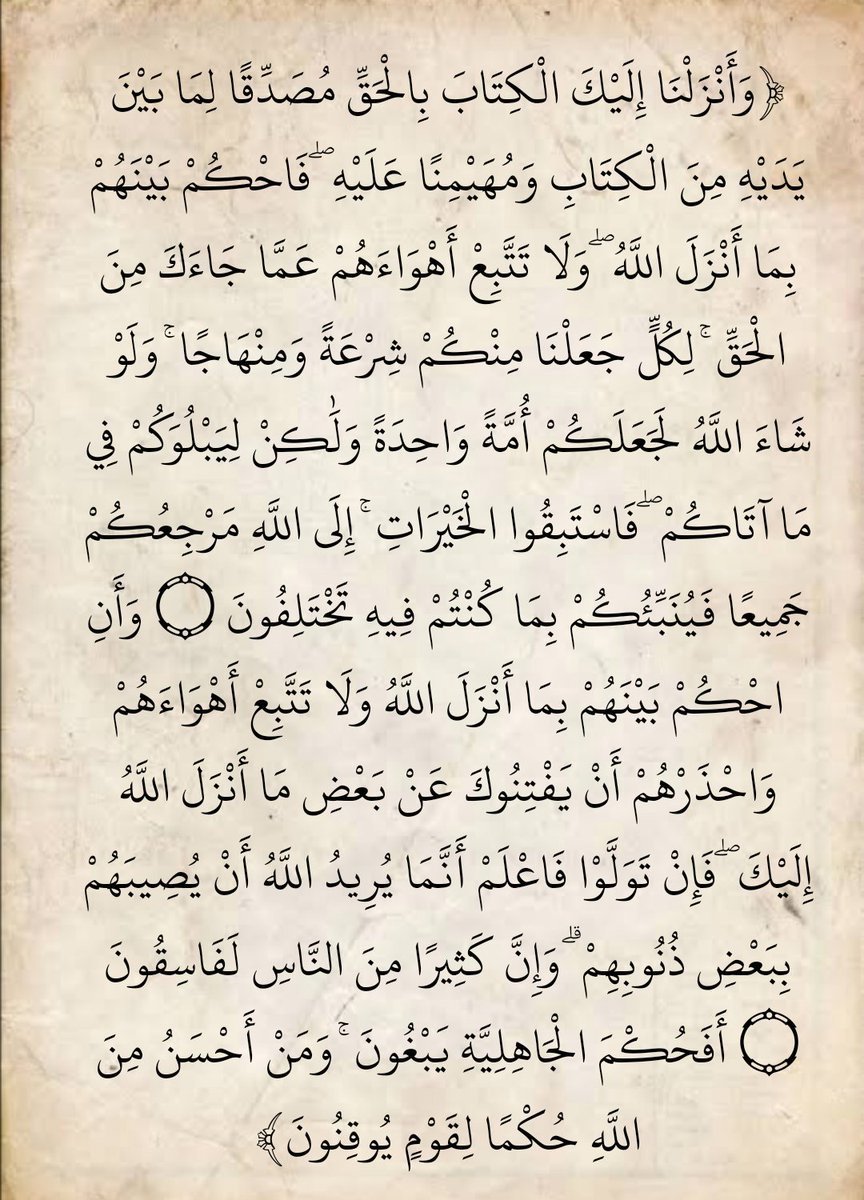 ﴿وَأَنْزَلْنَا إِلَيْكَ الْكِتَابَ بِالْحَقِّ مُصَدِّقًا لِمَا بَيْنَ
يَدَيْهِ مِنَ الْكِتَابِ وَمُهَيْمِنًا عَلَيْهِ ۖ فَاحْكُمْ بَيْنَهُمْ
بِمَا أَنْزَلَ اللَّهُ ۖ وَلَا تَتَّبِعْ أَهْوَاءَهُمْ عَمَّا جَاءَكَ مِنَ
الْحَقِّ ۚ لِكُلٍّ جَعَلْنَا مِنْكُمْ شِرْعَةً وَمِنْهَاجًا ۚ وَلَوْ
شَاءَ اللَّهُ لَجَعَلَكُمْ أُمَّةً وَاحِدَةً وَلَٰكِنْ لِيَبْلُوَكُمْ فِي
مَا آتَاكُمْ ۖ فَاسْتَبِقُوا الْخَيْرَاتِ ۚ إِلَى اللَّهِ مَرْجِعُكُمْ
جَمِيعًا فَيُنَبِّئُكُمْ بِمَا كُنْتُمْ فِيهِ تَخْتَلِفُونَ ۝ وَأَنِ
احْكُمْ بَيْنَهُمْ بِمَا أَنْزَلَ اللَّهُ وَلَا تَتَّبِعْ أَهْوَاءَهُمْ
وَاحْذَرْهُمْ أَنْ يَفْتِنُوكَ عَنْ بَعْضِ مَا أَنْزَلَ اللَّهُ
إِلَيْكَ ۖ فَإِنْ تَوَلَّوْا فَاعْلَمْ أَنَّمَا يُرِيدُ اللَّهُ أَنْ يُصِيبَهُمْ
بِبَعْضِ ذُنُوبِهِمْ ۗ وَإِنَّ كَثِيرًا مِنَ النَّاسِ لَفَاسِقُونَ
۝ أَفَحُكْمَ الْجَاهِلِيَّةِ يَبْغُونَ ۚ وَمَنْ أَحْسَنُ مِنَ
اللَّهِ حُكْمًا لِقَوْمٍ يُوقِنُونَ﴾